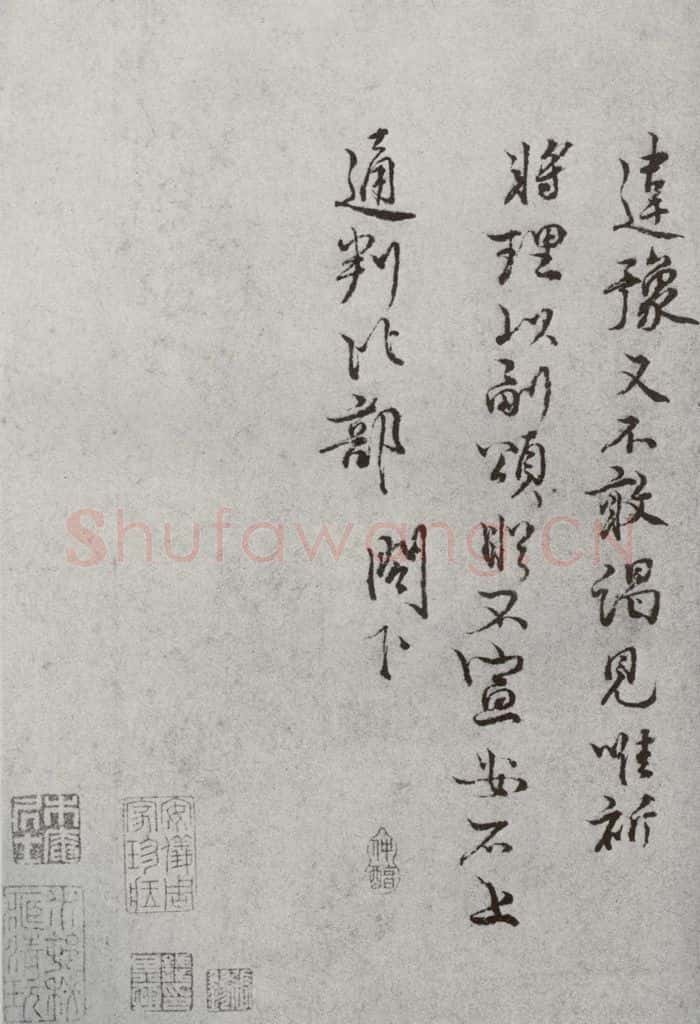 違豫又不敢謁見唯祈
將理以副頌不宣安石上
通判比部 閣下
安儀周家珍藏
Shufawang.CN